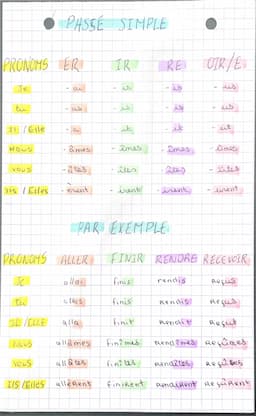 PASSÉ SIMPLE
PRONOMS ER IR RE OIR/E
Je - ai - is - is - us
tu - as - is - is - us
Il / Elle - a - it - it - ut
nous - âmes - îmes - îmes - ûmes
vous - âtes - îtes - îtes - ûtes
Ils / Elles - èrent - irent - irent - urent
PAR EXEMPLE
PRONOMS ALLER FINIR RENDRE RECEVOIR
Je allai finis rendis reçus
tu allas finis rendis reçus
IL / ELLE alla finit rendit reçut
nous allâmes finîmes rendîmes reçûmes
vous allâtes finîtes rendîtes reçûtes
Ils / Elles allèrent finirent rendirent reçurent